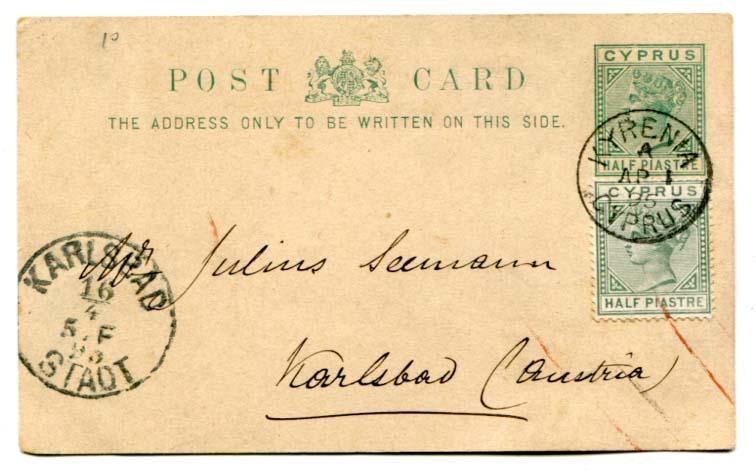 10
CYPRUS
POST CARD
THE ADDRESS ONLY TO BE WRITTEN ON THIS SIDE.
HALF PIASTRE
KYRENIA
A
AP 1
95
CYPRUS
CYPRUS
HALF PIASTRE
KARLSBAD
16
4
5.F
95
STADT
Mr Julius Seemann
Karlsbad (Austria)